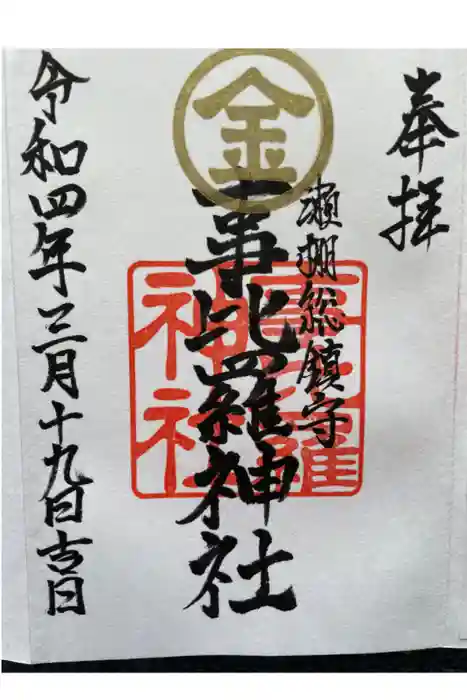 奉拝
瀬棚総鎮守
金
事比羅神社
事比羅
神社
令和四年三月十九日吉日